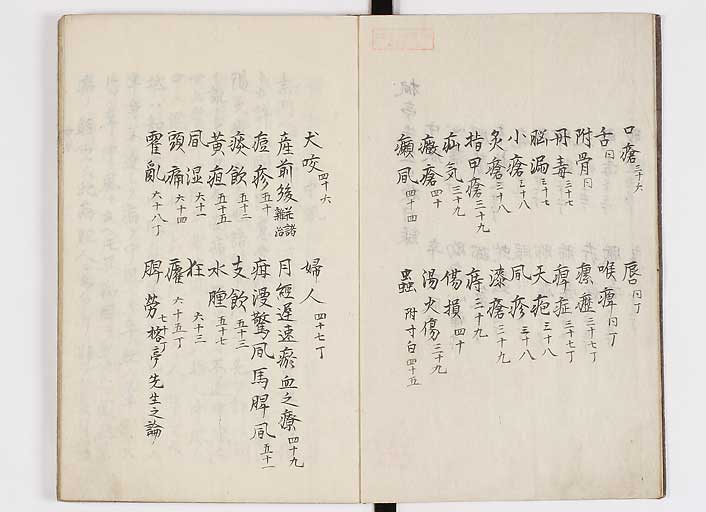 口瘡 三十六 唇 同丁
舌 同 喉痺 同丁
附骨 同 瘰癧 三十七丁
丹毒 三十七 痺症 三十七丁
脳漏 三十七 天疱 三十八
小瘡 三十八 風疹 三十八
灸瘡 三十八 漆瘡 三十九
指甲瘡 三十九 痔 三十九
疝気 三十九 傷損 四十
癜瘡 四十 湯火傷 三十九
癩風 四十四 蟲 附寸白 四十五
犬咬 四十六 婦人 四十七丁
産前後 並諸雜治 月經遅速瘀血之療 四十九
痘疹 五十 毎漫驚風馬脾風 五十一
痰飲 五十二 支飲 五十三
黄疸 五十五 水腫 五十七
風湿 六十一 狂 六十三
頭痛 六十四 癰 六十五丁
霍亂 六十八丁 脾勞 七十丁 榕亭先生之論